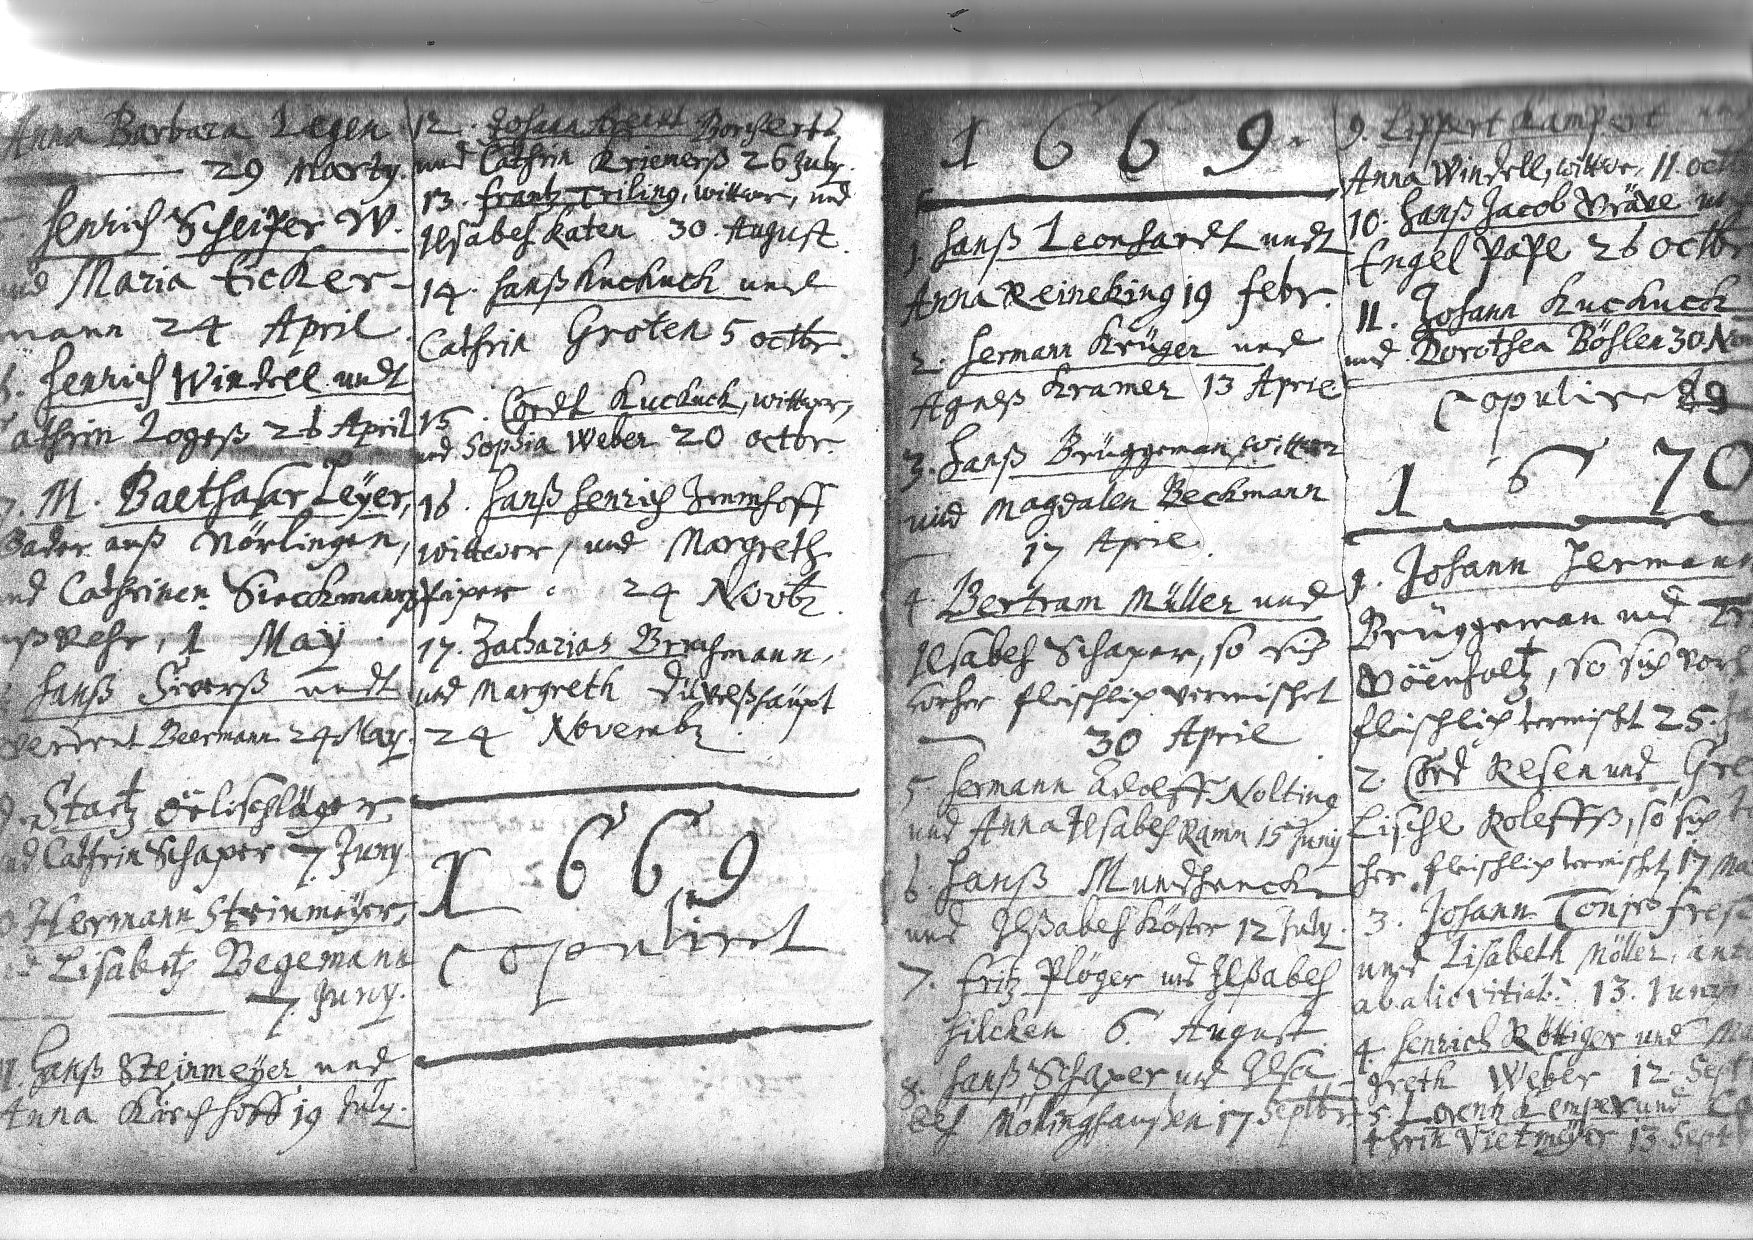 Anna Barbara Legen
29 Marty.
Henrich Scheiper W.
und Maria Ecker-
mann 24 April.
6. Henrich Windell undt
Cathrin Logeß 26 April
7. M. Balthasar Leÿer,
Bader auß Nörlingen,
und Cathrinen Sieckmanns
1 Maÿ.
Hanß undt
Beermann 24 May.
9. Statz Örlischläger
und Cathrin Schaper 7. Juny
10 Hermann Steinmeÿer,
und Lisabetz Begemann
7. Juny.
11. Hanß Steinmeÿer und
Anna Kirchhoff 19 July.
12. Johann Arent Borchertz
und Cathrin Krienerß 26 July.
13. Frantz Triling, wittwer, und
Ilsabeh Katen 30. August.
14. Hanß Kuckuck und
Cathrin Groten 5 octbr.
15. Cordt Kuckuck, wittwer,
und Sophia Weber 20 octbr.
16. Hanß Henrich Immhoff
wittwer, und Margreth
Piper. 24 Novbr.
17. Zacharias Brachmann,
und Margreth Düvelßhäupt
24 Novembr.
1669
copuliret
1669
1. Hanß Leonhardt undt
Anna Reineking 19 Febr.
2. Hermann Krüger und
Agneß Kramer 13 April
3. Hanß Brüggeman, wittwer
und Magdalen Beckmann
17 April.
4. Bertram Müller und
Ilsabeh Schaper, so sich
vorher fleischlich vermischet
30 April
5 Hermann Adolff Nolting
und Anna Ilsabeh Ramm 15 Juny
6. Hanß Mundhencke
und Ilßabeh Köster 12 July.
7. Fritz Plöger und Ilßabeh
Hilcken 6. August.
8. Hanß Schaper und Ilsa-
beh Mölinghausen 17 Septbr.
9. Lippert Kampert und
Anna Windell, wittwe, 11. octb
10. Hanß Jacob Vräve und
Engel Pape 26 octbr
11. Johann Kuckuck
und Dorothea Böhlen 30. Nov
copuliret
1670
1. Johann Hermann
Brüggeman und
Vöenholtz, so sich vorh
fleischlich vermischt 25.
2. Cord Resen und Gre
Lische Roleffß, so sich
her fleischlich vermischt, 17 Ma
3. Johann Tönjes Frese
und Lisabeth Möller, ante
ab alio vitiat. 13. Juny
4. Henrich Röttiger und Mar
greth Weber 12. Sept
5. Lorentz Kemper und Ca
thrin Vietmeÿer 13 Septb